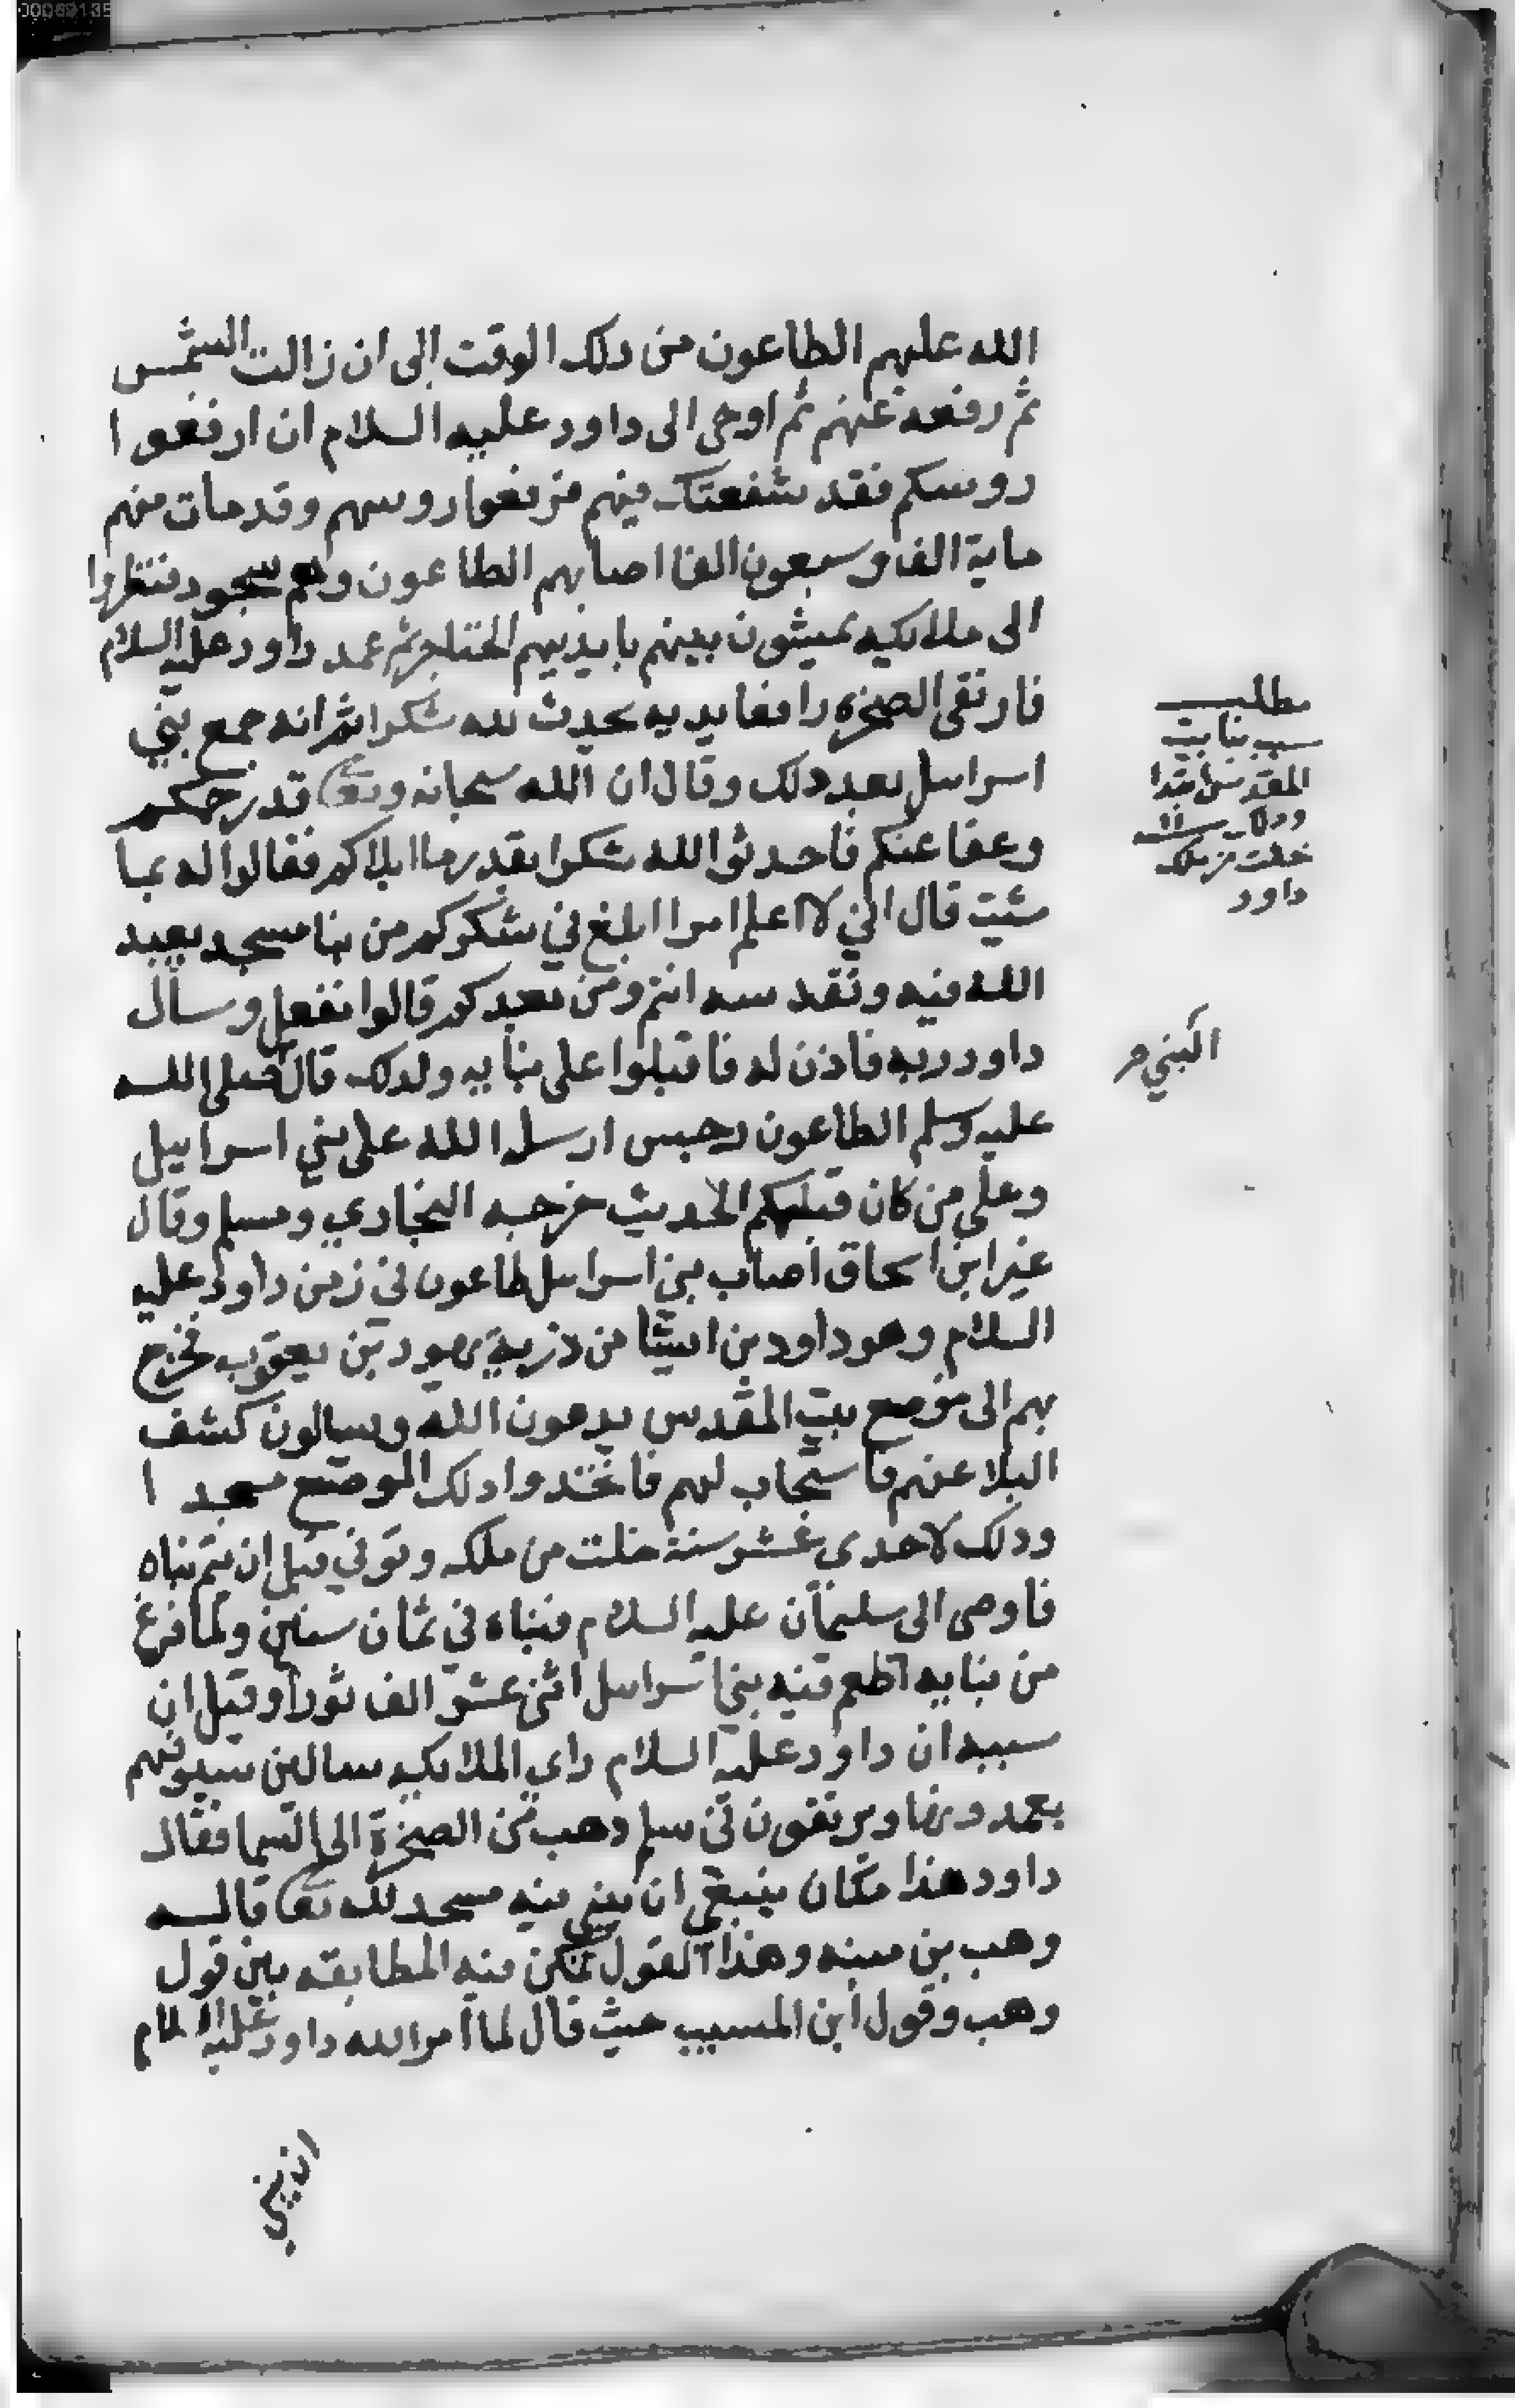 الله عليهم الطاعون من دلك الوقت إلى ان زالت الشمس
ثم رفعه عنهم ثم اوحى الى داود عليه السلام ان ارفعوا
روسكم فقد شفعتك فيهم فرفعوا روسهم وقد مات منهم
ماية الف وسبعون الفا اصابهم الطاعون وهم سجود فنظروا
الى ملايكيه يمشون بينهم بايديهم الخناجر ثم عمد داود عليه السلام
فارتقى الصخره رافعا يديه يحدث لله شكرا ثم انه جمع بني
اسرايل بعد دلك وقال ان الله سبحانه وتعا قد رحمكم
وعفا عنكم فاحدثوا لله شكرا بقدر ما ابلاكم فقالوا له بما
شيت قال اني لا اعلم امرا ابلغ في شكركم من بنا مسجد يعبد
الله فيه وتقدسه انتم ومن بعدكم قالوا نفعل وسال
داود ربه فاذن له فاقبلوا على بنايه ولدلك قال صلى الله
عليه وسلم الطاعون رجس ارسل الله على بني اسراييل
وعلى من كان قبلكم الحديث خرجه البخاري ومسلم وقال
غير ابن اسحاق اصاب بني اسرايل طاعون في زمن داود عليه
السلام وهو داود بن ايشا من ذرية يهود بن يعقوب فخرج
بهم الى موضع بيت المقدس يدعون الله ويسالون كشف
البلا عنهم فاستجاب لهم فاتخذوا دلك الموضع مسجدا
ودلك لاحدى عشر سنة خلت من ملكه وتوفي قبل ان يتم بناه
فاوصى الى سليمان عليه السلام فبناه في ثمان سنين ولما فرغ
من بنايه اطعم فيه بني اسرايل اثنى عشر الف ثورا وقيل ان
سببه ان داود عليه السلام راي الملايكيه سالين سيوفهم
يغمدونها ويرتقون في سلم دهب من الصخرة الى السما فقال
داود هذا مكان ينبغي ان يبنى فيه مسجد لله تعا قاله
وهب بن منبه وهذا القول يمكن فيه المطابقه بين قول
وهب وقول ابن المسيب حيث قال لما امر الله داود عليه السلام
ان يبني
مطلب
سبب بنا بيت
المقدس
خلت من ملك
داود